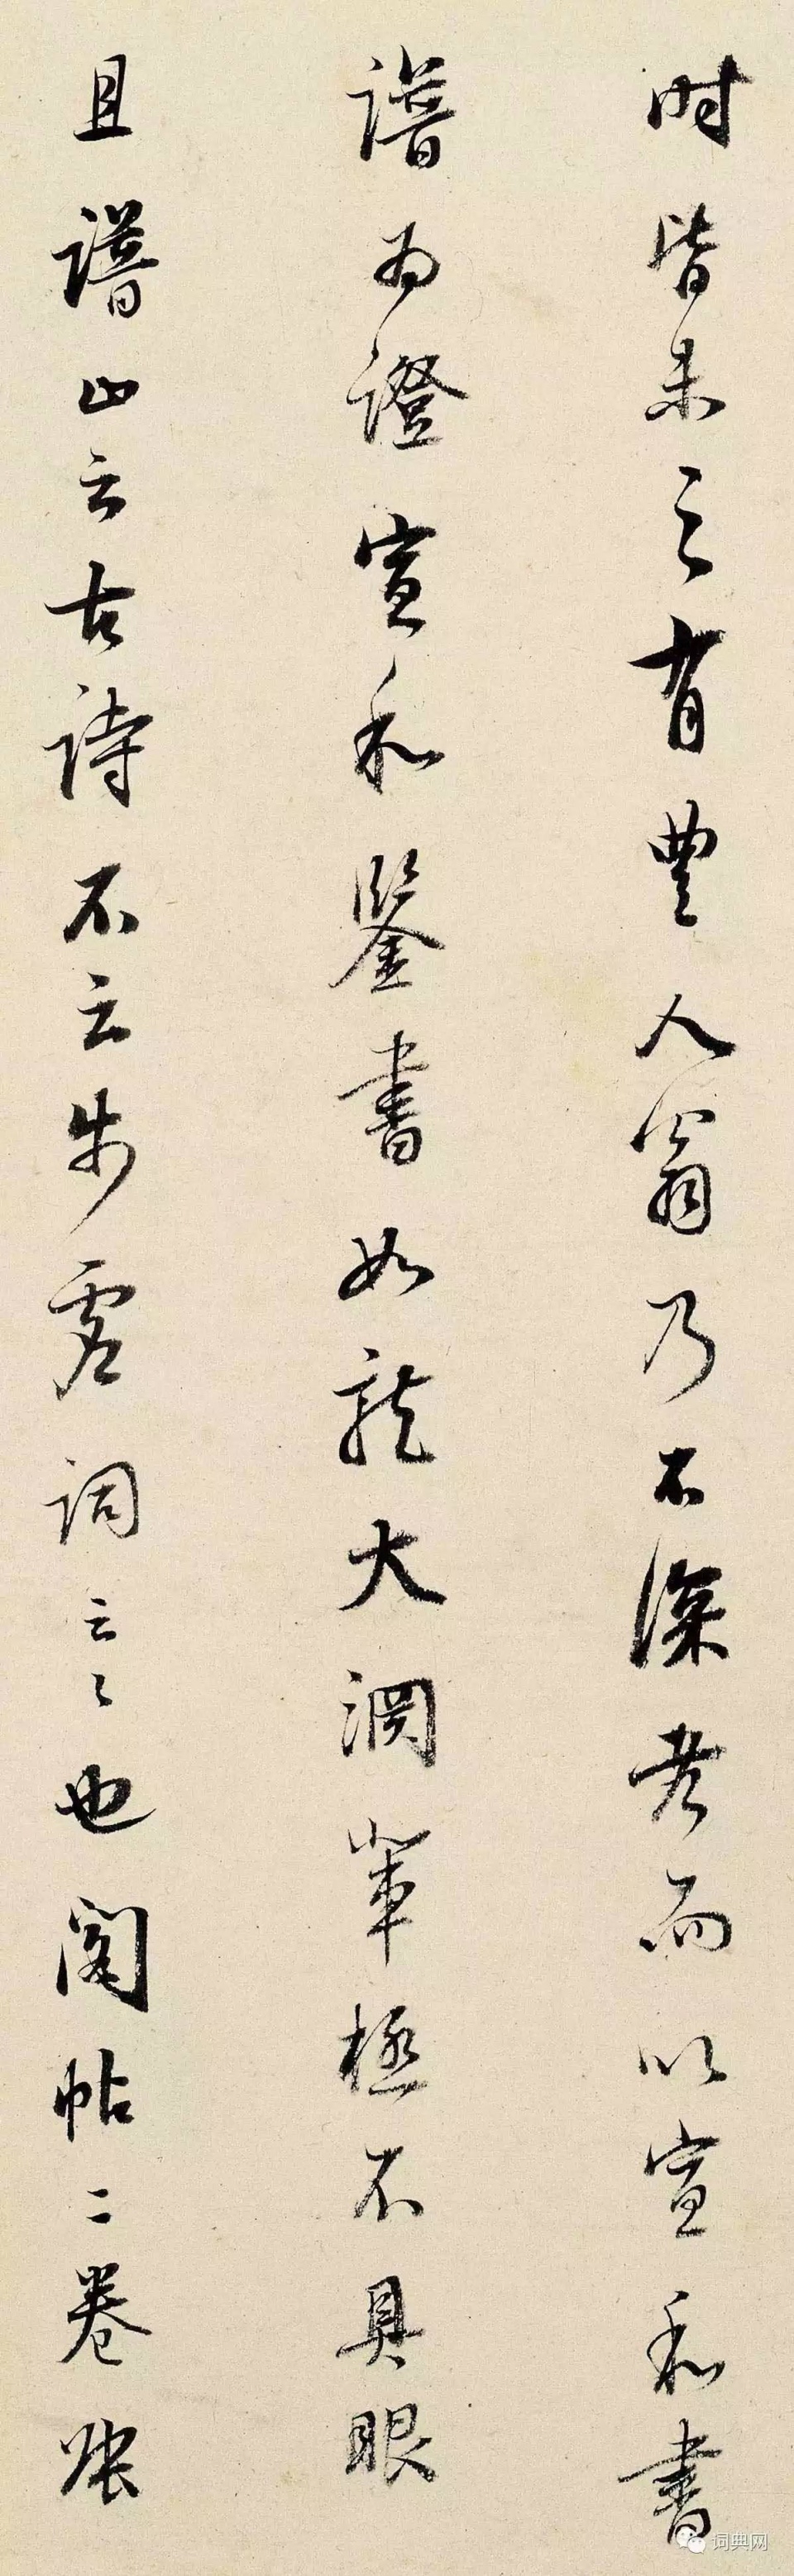 时皆未之有豐人翁乃不深考而以宣和書
譜为證宣和鑒書如龍大淵輩極不具眼
且譜止云古詩不云步虛詞云云也閣帖二卷張
词典网